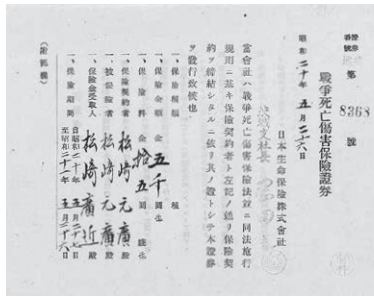 證券
番號 第 8368 號
戰爭死亡傷害保險證券
昭和二十年五月二六日
日本生命保險株式會社
支社長
當會社ハ戰爭死亡傷害保險法竝ニ同法施行
規則ニ基キ保險契約者ト左記ノ通リ保險契
約ヲ締結シタルニ依リ其ノ證トシテ本證券
ヲ發行致候也
一、保險種類 種
一、保險金額 金五千圓也
一、保險料 金拾五圓 錢也
一、保險契約者 松崎元廣殿
一、被保險者 松崎元廣殿
一、保險金受取人 松崎廣近殿
一、保險期間 自昭和二十年五月二七日
至昭和二十一年五月二十六日